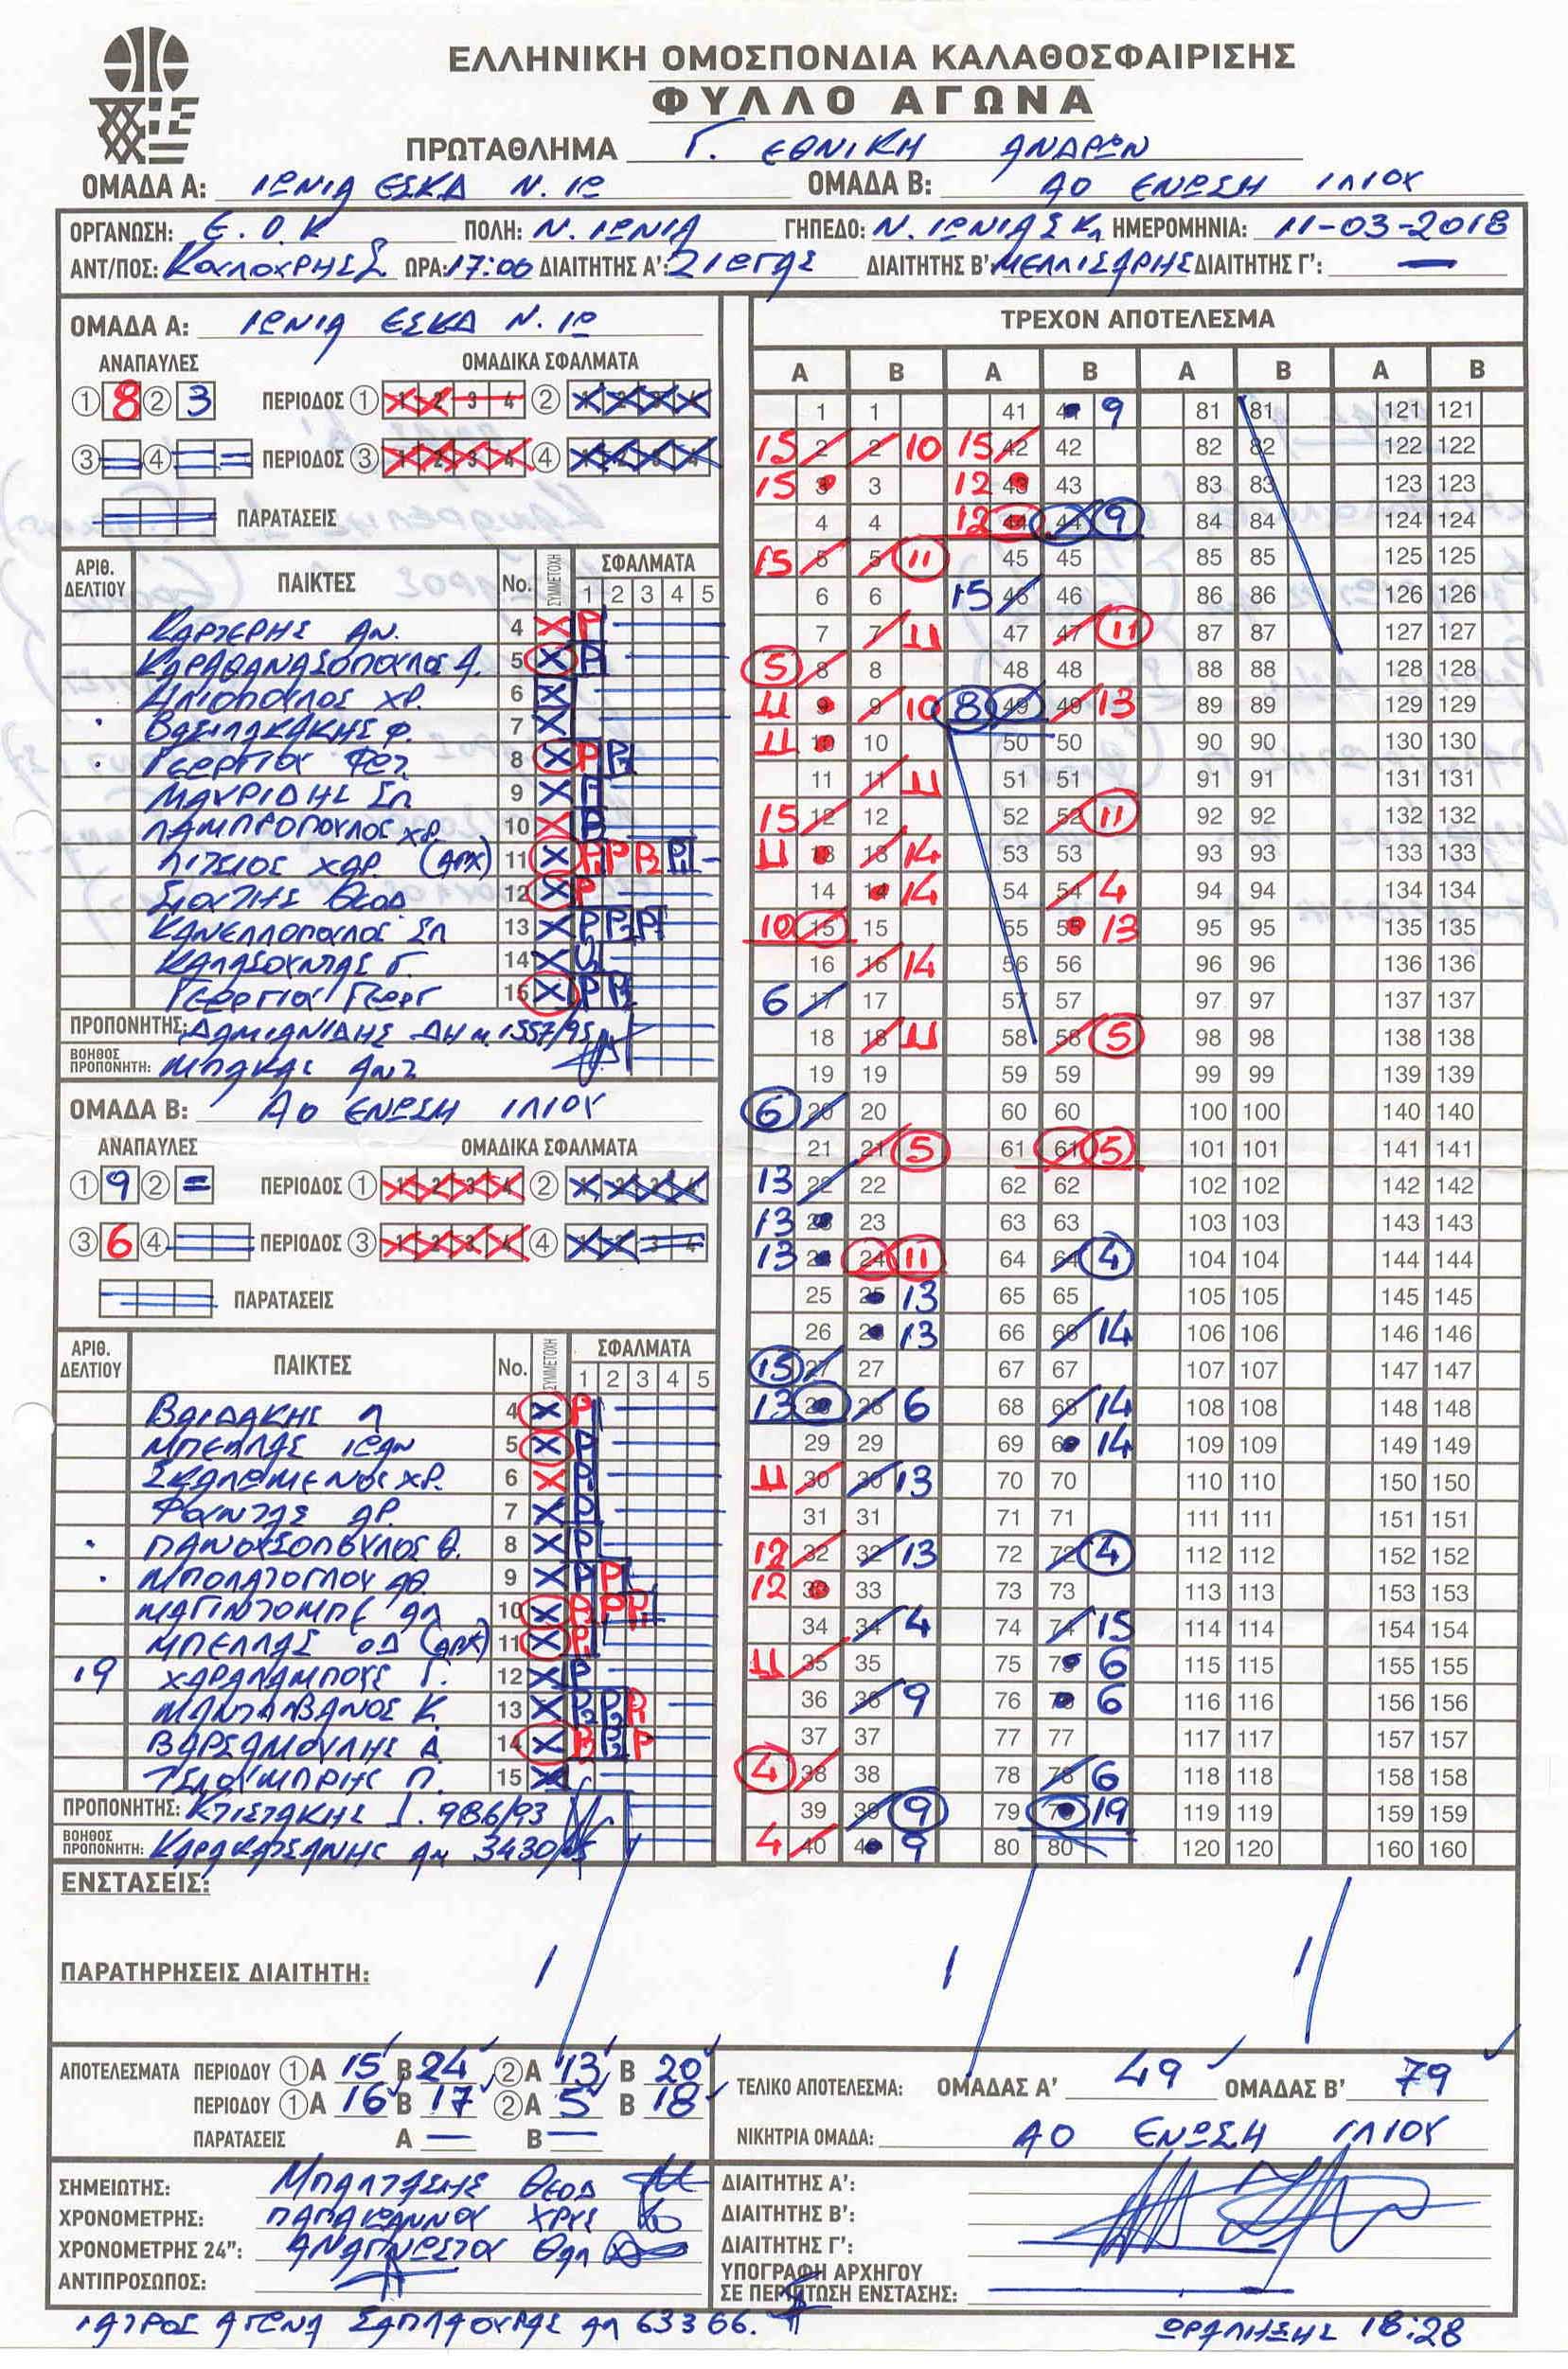 ΕΛΛΗΝΙΚΗ ΟΜΟΣΠΟΝΔΙΑ ΚΑΛΑΘΟΣΦΑΙΡΙΣΗΣ
ΦΥΛΛΟ ΑΓΩΝΑ
ΠΡΩΤΑΘΛΗΜΑ Γ. ΕΘΝΙΚΗ ΑΝΔΡΩΝ
ΟΜΑΔΑ Α: ΙΩΝΙΑ ΕΣΚΔ Ν. ΙΩ ΟΜΑΔΑ Β: ΑΟ ΕΝΩΣΗ ΙΛΙΟΥ
ΟΡΓΑΝΩΣΗ: Ε.Ο.Κ ΠΟΛΗ: Ν. ΙΩΝΙΑ ΓΗΠΕΔΟ: Ν. ΙΩΝΙΑΣ ΚΛ ΗΜΕΡΟΜΗΝΙΑ: 11-03-2018
ΑΝΤ/ΠΟΣ: ΩΡΑ: 17:00 ΔΙΑΙΤΗΤΗΣ Α': ΔΙΑΙΤΗΤΗΣ Β': ΜΕΛΛΙΣΑΡΗΣ ΔΙΑΙΤΗΤΗΣ Γ': —
ΟΜΑΔΑ Α: ΙΩΝΙΑ ΕΣΚΔ Ν. ΙΩ
ΑΝΑΠΑΥΛΕΣ ΟΜΑΔΙΚΑ ΣΦΑΛΜΑΤΑ
① 8 ② 3 ΠΕΡΙΟΔΟΣ ① 1 2 3 4 ② 1 2 3 4
③ ④ ΠΕΡΙΟΔΟΣ ③ 1 2 3 4 ④ 1 2 3 4
ΠΑΡΑΤΑΣΕΙΣ
ΑΡΙΘ. ΔΕΛΤΙΟΥ ΠΑΙΚΤΕΣ No. ΣΥΜΜΕΤΟΧΗ ΣΦΑΛΜΑΤΑ
1 2 3 4 5
ΚΑΡΤΕΡΗΣ ΑΝ. 4 X P
ΚΑΡΑΘΑΝΑΣΟΠΟΥΛΟΣ Α. 5 X P
ΗΛΙΟΠΟΥΛΟΣ ΧΡ. 6 X
ΒΑΣΙΛΑΚΑΚΗΣ Φ. 7 X
ΓΕΩΡΓΙΟΥ ΦΩΤ 8 X P P
ΜΑΥΡΙΔΗΣ ΣΠ 9 X
ΛΑΜΠΡΟΠΟΥΛΟΣ ΧΡ. 10 X P
ΠΙΤΣΙΟΣ ΧΑΡ. (ΑΡΧ) 11 X P P P2 P1
ΘΕΟΔ 12 X P
ΚΑΝΕΛΛΟΠΟΥΛΟΣ ΣΠ 13 X P P2 P
Γ. 14 X
ΓΕΩΡΓΙΟΥ ΓΕΩΡΓ 15 X P P
ΠΡΟΠΟΝΗΤΗΣ: ΔΑΜΙΑΝΙΔΗΣ ΔΗΜ. 1557/95
ΒΟΗΘΟΣ ΠΡΟΠΟΝΗΤΗ: ΜΠΑΚΑΣ ΑΝΤ
ΟΜΑΔΑ Β: ΑΟ ΕΝΩΣΗ ΙΛΙΟΥ
ΑΝΑΠΑΥΛΕΣ ΟΜΑΔΙΚΑ ΣΦΑΛΜΑΤΑ
① 9 ② = ΠΕΡΙΟΔΟΣ ① 1 2 3 4 ② 1 2 3 4
③ 6 ④ ΠΕΡΙΟΔΟΣ ③ 1 2 3 4 ④ 1 2 3 4
ΠΑΡΑΤΑΣΕΙΣ
ΑΡΙΘ. ΔΕΛΤΙΟΥ ΠΑΙΚΤΕΣ No. ΣΥΜΜΕΤΟΧΗ ΣΦΑΛΜΑΤΑ
1 2 3 4 5
ΒΑΙΔΑΚΗΣ Π 4 X P
ΜΠΕΛΛΑΣ ΙΩΑΝ 5 X P
ΣΚΑΛΩΜΕΝΟΣ ΧΡ. 6 X P
ΑΡ. 7 X P
ΠΑΝΟΥΣΟΠΟΥΛΟΣ Θ. 8 X P
ΜΠΟΛΑΤΟΓΛΟΥ ΑΘ. 9 X P P
ΜΑΓΙΝΤΟΜΠΕ ΑΛ 10 X P P P1
ΜΠΕΛΛΑΣ ΟΔ (ΑΡΧ) 11 X P
19 ΧΑΡΑΛΑΜΠΟΥΣ Γ. 12 X P
Κ. 13 X P2 P2 P1
ΒΑΡΣΑΜΟΥΛΗΣ Α. 14 X P2 P2 P
ΤΣΑΟΥΜΠΡΗΣ Π. 15 X
ΠΡΟΠΟΝΗΤΗΣ: ΚΤΙΣΤΑΚΗΣ Ι. 986/93
ΒΟΗΘΟΣ ΠΡΟΠΟΝΗΤΗ: ΚΑΡΑΚΑΤΣΑΝΗΣ
ΤΡΕΧΟΝ ΑΠΟΤΕΛΕΣΜΑ
Α Β Α Β Α Β Α Β
1 1 41 41 9 81 81 121 121
15 2 2 10 15 42 42 82 82 122 122
15 3 3 12 43 43 83 83 123 123
4 4 12 44 44 9 84 84 124 124
15 5 5 11 45 45 85 85 125 125
6 6 15 46 46 86 86 126 126
7 7 11 47 47 11 87 87 127 127
5 8 8 48 48 88 88 128 128
11 9 9 10 8 49 49 13 89 89 129 129
11 10 10 50 50 90 90 130 130
11 11 11 51 51 91 91 131 131
15 12 12 52 52 11 92 92 132 132
11 13 13 14 53 53 93 93 133 133
14 14 14 54 54 4 94 94 134 134
10 15 15 55 55 13 95 95 135 135
16 16 14 56 56 96 96 136 136
6 17 17 57 57 97 97 137 137
18 18 11 58 58 5 98 98 138 138
19 19 59 59 99 99 139 139
6 20 20 60 60 100 100 140 140
21 21 5 61 61 5 101 101 141 141
13 22 22 62 62 102 102 142 142
13 23 23 63 63 103 103 143 143
13 24 24 11 64 64 4 104 104 144 144
25 25 13 65 65 105 105 145 145
26 26 13 66 66 14 106 106 146 146
15 27 27 67 67 107 107 147 147
13 28 28 6 68 68 14 108 108 148 148
29 29 69 69 14 109 109 149 149
11 30 30 13 70 70 110 110 150 150
31 31 71 71 111 111 151 151
12 32 32 13 72 72 4 112 112 152 152
12 33 33 73 73 113 113 153 153
34 34 4 74 74 15 114 114 154 154
11 35 35 75 75 6 115 115 155 155
36 36 9 76 76 6 116 116 156 156
37 37 77 77 117 117 157 157
4 38 38 78 78 6 118 118 158 158
39 39 9 79 79 19 119 119 159 159
4 40 40 9 80 80 120 120 160 160
ΕΝΣΤΑΣΕΙΣ:
ΠΑΡΑΤΗΡΗΣΕΙΣ ΔΙΑΙΤΗΤΗ:
ΑΠΟΤΕΛΕΣΜΑΤΑ ΠΕΡΙΟΔΟΥ ① Α 15 Β 24 ② Α 13 Β 20
ΠΕΡΙΟΔΟΥ ① Α 16 Β 17 ② Α 5 Β 18
ΠΑΡΑΤΑΣΕΙΣ Α — Β —
ΤΕΛΙΚΟ ΑΠΟΤΕΛΕΣΜΑ: ΟΜΑΔΑΣ Α' 49 ΟΜΑΔΑΣ Β' 79
ΝΙΚΗΤΡΙΑ ΟΜΑΔΑ: ΑΟ ΕΝΩΣΗ ΙΛΙΟΥ
ΣΗΜΕΙΩΤΗΣ: ΜΠΑΛΤΑΣΗΣ ΘΕΟΔ
ΧΡΟΝΟΜΕΤΡΗΣ: ΠΑΠΑΙΩΑΝΝΟΥ ΧΡΥΣ
ΧΡΟΝΟΜΕΤΡΗΣ 24": ΑΝΑΓΝΩΣΤΟΥ ΘΑΛ
ΑΝΤΙΠΡΟΣΩΠΟΣ:
ΔΙΑΙΤΗΤΗΣ Α':
ΔΙΑΙΤΗΤΗΣ Β':
ΔΙΑΙΤΗΤΗΣ Γ':
ΥΠΟΓΡΑΦΗ ΑΡΧΗΓΟΥ
ΣΕ ΠΕΡΙΠΤΩΣΗ ΕΝΣΤΑΣΗΣ:
ΙΑΤΡΟΣ ΑΓΩΝΑ ΣΑΠΛΑΟΥΡΑΣ ΑΛ 63366.
ΩΡΑ ΛΗΞΗΣ 18:28